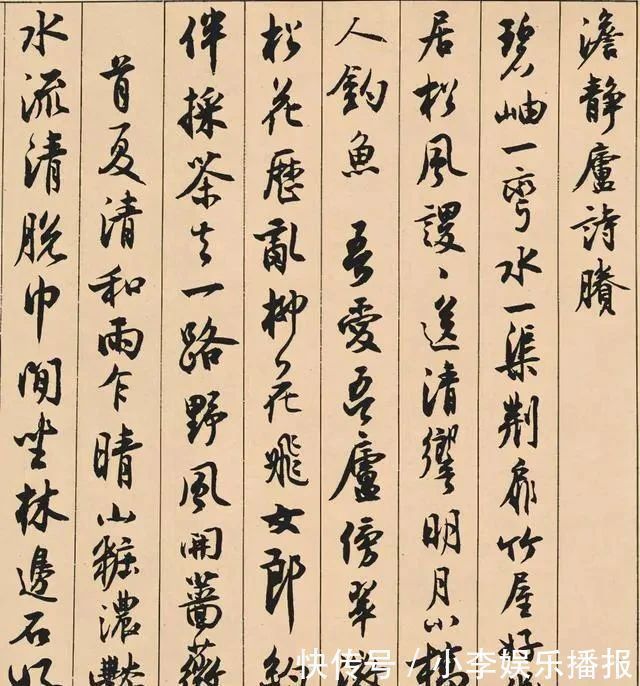 澹静廬詩賸
碧岫一彎水一渠荆扉竹屋好
居松風謖〻送清響明月小橋
人釣魚 吾愛吾廬傍翠
松花歷亂柳花飛女郎約
伴採茶去一路野風開薔薇
首夏清和雨乍晴山糚濃艷
水流清脱巾閒坐林邊石好
快传号/小李娱乐播报